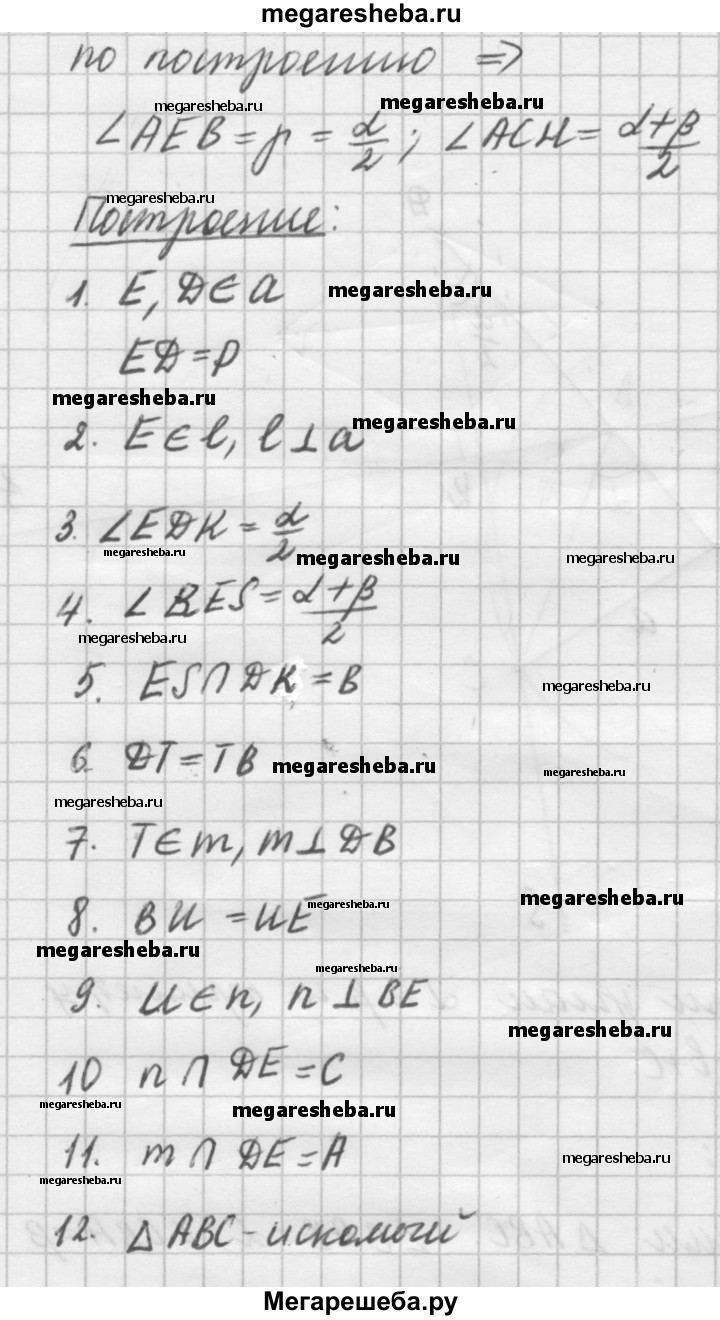 megaresheba.ru
по построению =>
megaresheba.ru
megaresheba.ru
∠AEB = p = α/2 ; ∠ACH = α+β/2
megaresheba.ru
Построение:
1. E, D ∈ a
megaresheba.ru
ED = P
megaresheba.ru
megaresheba.ru
2. E ∈ l, l ⊥ a
3. ∠EDK = α/2
megaresheba.ru
megaresheba.ru
megaresheba.ru
4. ∠RES = α+β/2
megaresheba.ru
5. ES ∩ DK = B
megaresheba.ru
6. DT = TB
megaresheba.ru
megaresheba.ru
megaresheba.ru
7. T ∈ m, m ⊥ DB
megaresheba.ru
8. BU = UE
megaresheba.ru
megaresheba.ru
megaresheba.ru
9. U ∈ n, n ⊥ BE
megaresheba.ru
10 n ∩ DE = C
megaresheba.ru
megaresheba.ru
11. m ∩ DE = A
megaresheba.ru
megaresheba.ru
12. Δ ABC - искомый
Мегарешеба.ру